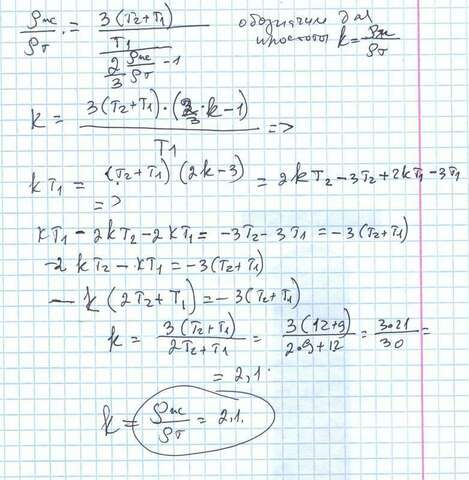 ρж/ρт = 3(T2+T1) / (T1 / (2/3 ρж/ρт −1))
обозначим для
простоты k = ρж/ρт
k = 3(T2+T1)·(2/3·k−1) / T1 =>
kT1 = (T2+T1)(2k−3) = 2kT2−3T2+2kT1−3T1
=>
kT1 − 2kT2 − 2kT1 = −3T2 − 3T1 = −3(T2+T1)
−2kT2 − kT1 = −3(T2+T1)
−k(2T2+T1) = −3(T2+T1)
k = 3(T2+T1) / 2T2+T1 = 3(12+9) / 2·9+12 = 3·21 / 30 =
= 2,1.
k = ρж/ρт = 2,1.